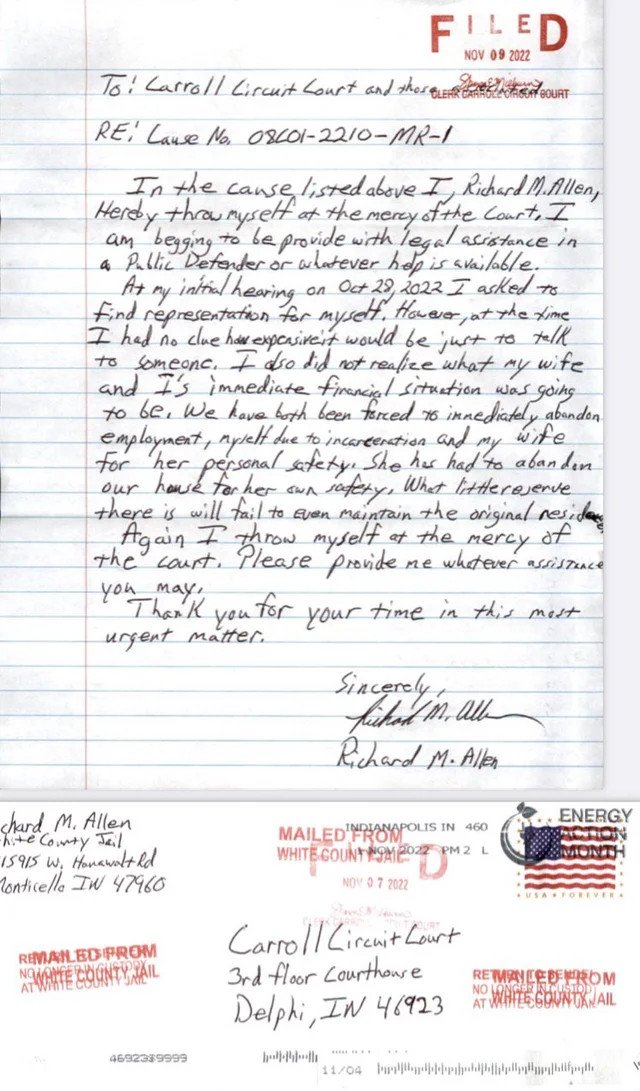 FILED
NOV 09 2022
CLERK CARROLL CIRCUIT COURT
To: Carroll Circuit Court and those
RE: Cause No. 08C01-2210-MR-1
In the cause listed above I, Richard M. Allen,
Hereby throw myself at the mercy of the Court. I
am begging to be provide with legal assistance in
a Public Defender or whatever help is available.
At my initial hearing on Oct 28, 2022 I asked to
find representation for myself. However, at the time
I had no clue how expensive it would be just to talk
to someone. I also did not realize what my wife
and I's immediate financial situation was going
to be. We have both been forced to immediately abandon
employment, myself due to incarceration and my wife
for her personal safety. She has had to abandon
our house for her own safety. What little reserve
there is will fail to even maintain the original
Again I throw myself at the mercy of
the court. Please provide me whatever assistance
you may.
Thank you for your time in this most
urgent matter.
Sincerely,
Richard M. Allen
Richard M. Allen
chard M. Allen
hite County Jail
15915 W. Hanawalt Rd
Monticello IN 47960
MAILED FROM
WHITE COUNTY JAIL
INDIANAPOLIS IN 460
NOV 2022 PM 2 L
FILED
NOV 07 2022
ENERGY
ACTION
MONTH
USA FOREVER
Carroll Circuit Court
3rd floor Courthouse
Delphi, IN 46923
MAILED FROM
WHITE COUNTY JAIL
NO LONGER IN CUSTODY
AT WHITE COUNTY JAIL
MAILED FROM
WHITE COUNTY JAIL
NO LONGER IN CUSTODY
AT WHITE COUNTY JAIL
4692389999
11/04